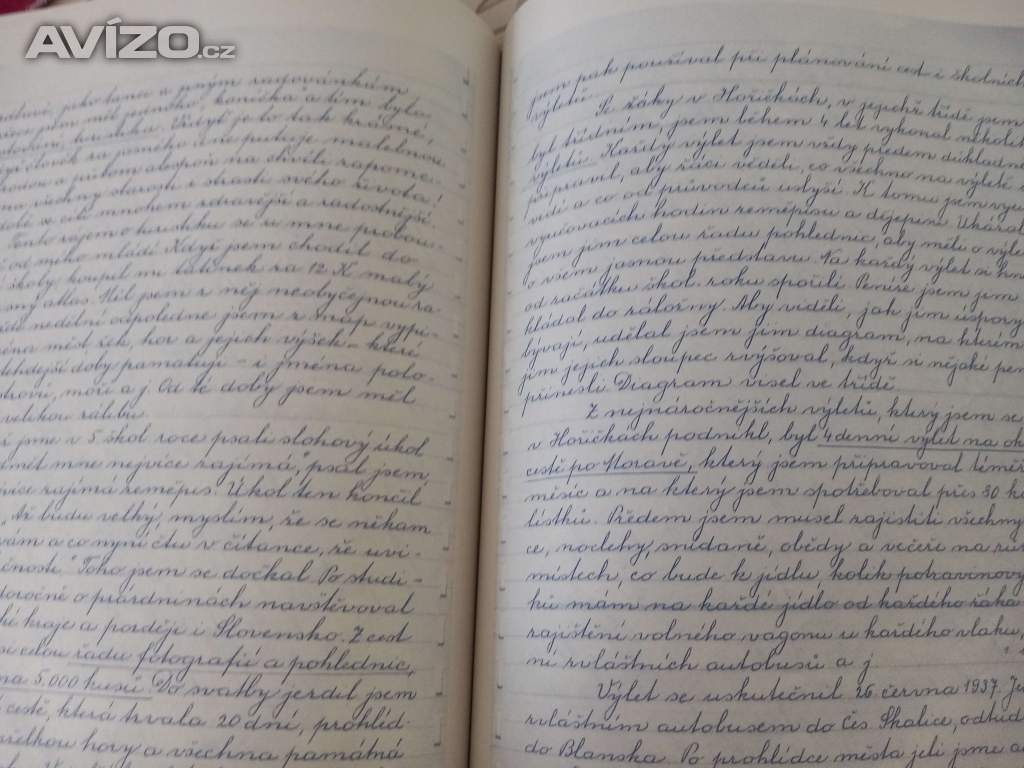 AVÍZO.cz
jako tance a jiným radovánkám
měl jediného "koníčka" a tím byla
turistika. Vždyť je to tak krásné,
člověk za jasného dne putuje malebnou
a přitom alespoň na chvíli zapome-
na všechny starosti i strasti svého života!
se cítí mnohem zdravější a radostnější.
Tento zájem o turistiku se ve mne probou-
od mého mládí. Když jsem chodil do
školy, koupil mi tatínek za 12 K malý
atlas. Měl jsem z něj neobyčejnou ra-
nedělní odpoledne jsem z map vypi-
měst, řek, hor a jejich výšek - které
doby pamatuji - i jména polo-
moří a j. Od té doby jsem měl
velkou zálibu.
jsme v 5. škol. roce psali slohový úkol
mne nejvíce zajímá," psal jsem,
zajímá zeměpis. Úkol ten končil
"Až budu velký, myslím, že se někam
a co nyní čtu v čítance, že uvi-
Toho jsem se dočkal. Po studi-
o prázdninách navštěvoval
kraje a později i Slovensko. Z cest
si celou řadu fotografií a pohlednic,
na 5.000 kusů. Do svatby jezdil jsem
cestě, která trvala 20 dní, prohléd-
hory a všechna památná
jsem pak používal při plánování cest i školních
výletů.
Se žáky v Hořičkách, v jejichž třídě jsem
byl třídním, jsem během 4 let vykonal několik
výletů. Každý výlet jsem vždy předem důkladně
připravil, aby žáci věděli, co všechno na výletě
vidí a co od průvodců uslyší. K tomu jsem
vyučovacích hodin zeměpisu a dějepisu. Ukázal
jsem jim celou řadu pohlednic, aby měli o
o všem jasnou představu. Na každý výlet si
od začátku škol. roku spořili. Peníze jsem jim
kládal do záložny. Aby viděli, jak jim úspory
bývají, udělal jsem jim diagram, na kterém
jim jejich sloupec zvyšoval, když si nějaké
přinesli. Diagram visel ve třídě.
Z nejnáročnějších výletů, který jsem se
v Hořičkách podnikl, byl 4denní výlet na
cestě po Moravě, který jsem připravoval téměř
měsíc a na který jsem spotřeboval přes 30
lístků. Předem jsem musel zajistiti všechny
ce, noclehy, snídaně, obědy a večeře na
místech, co bude k jídlu, kolik potravinový
ků mám na každé jídlo od každého žáka
zajištění volného vagonu u každého vlaku,
ní zvláštních autobusů a j.
Výlet se uskutečnil 26. června 1937.
zvláštním autobusem do Čes. Skalice,
do Blanska. Po prohlídce města jeli jsme